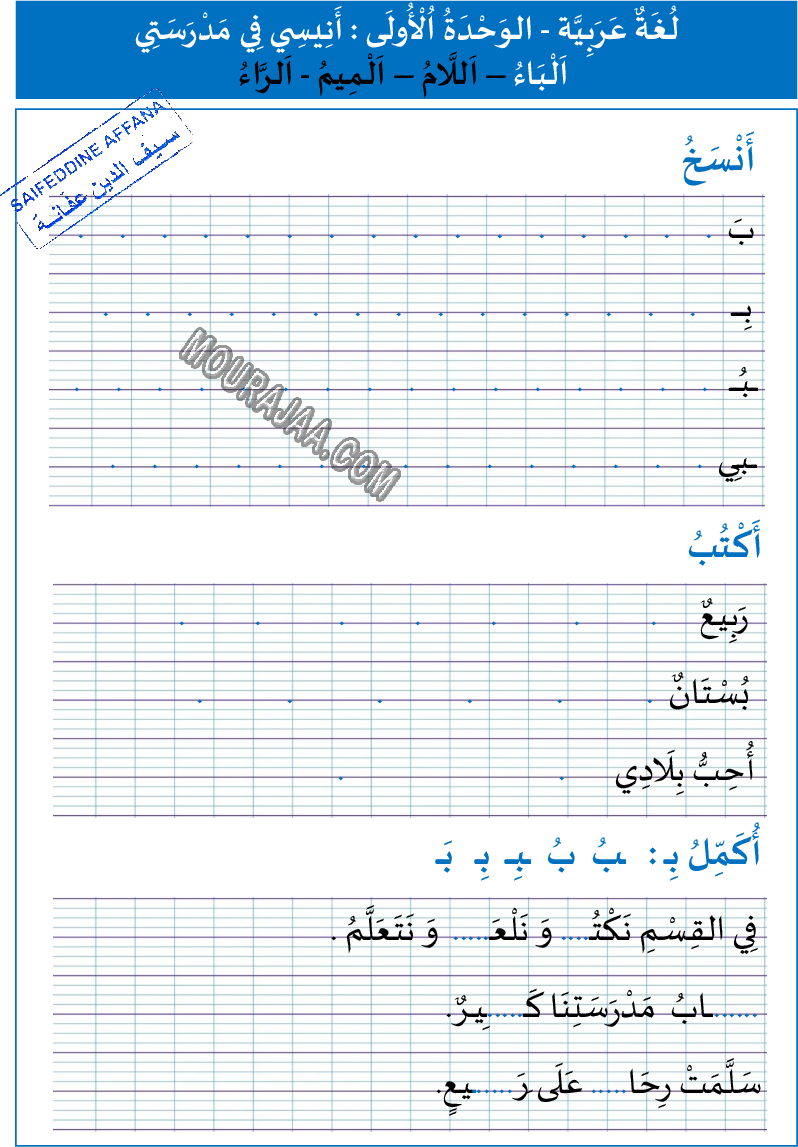 لُغَةٌ عَرَبِيَّة - الوَحْدَةُ اُلْأُولَى : أَنِيسِي فِي مَدْرَسَتِي
اَلْبَاءُ – اَللَّامُ – اَلْمِيمُ - اَلرَّاءُ
SAIFEDDINE AFFANA
سيف الدين عفانة
أَنْسَخُ
بَ
بِـ
ـبُـ
ـبِي
MOURAJAA.COM
أَكْتُبُ
رَبِيعٌ
بُسْتَانٌ
أُحِبُّ بِلَادِي
أُكَمِّلُ بِـ : ـبُ بُ ـبِـ بِـ بَـ
فِي القِسْمِ نَكْتُـ.... وَ نَلْعَـ..... وَ نَتَعَلَّمُ .
......ـابُ مَدْرَسَتِنَا كَـ.....ـيِـرٌ.
سَلَّمَتْ رِحَا..... عَلَى رَ......ـيعٍ.